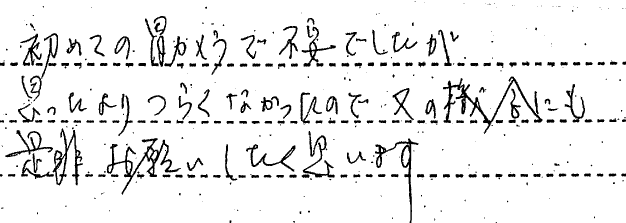 初めての胃カメラで不安でしたが
思ったよりつらくなかったので又の機会にも
是非お願いしたく思います